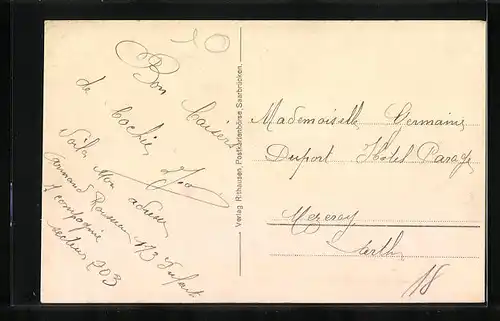 10
Bon Baisers
de
Voila Mon adresse
Armand 173 Infant
1 compagnie
secteur 203
Verlag Rithausen, Postkartenbörse, Saarbrücken.
Mademoiselle Germaine
Duport Hotel
Mezeray
Sarth
18